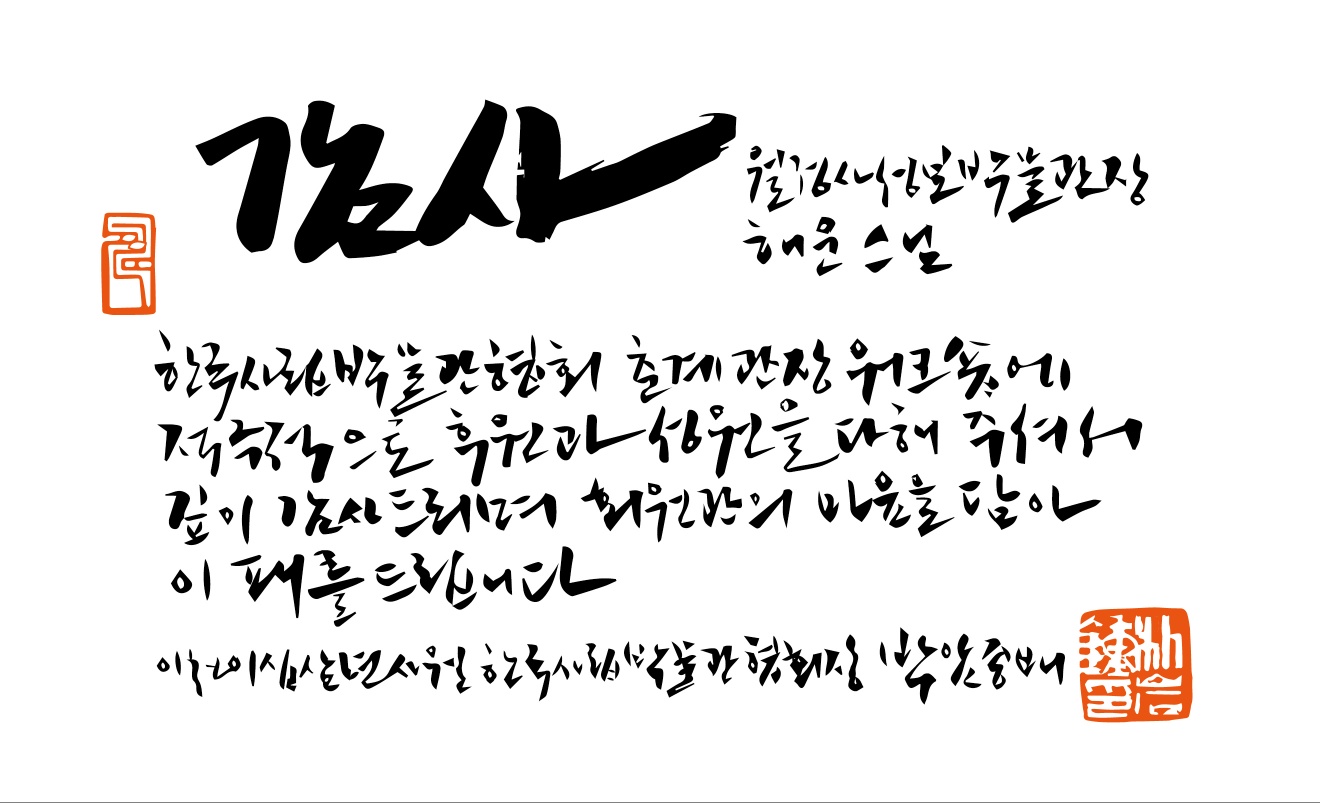 감사
월정사성보박물관장
해운 스님
한국사립박물관협회 춘계관장워크숍에
적극적으로 후원과 성원을 다해 주셔서
깊이 감사드리며 회원관의 마음을 담아
이 패를 드립니다
한국사립박물관협회장